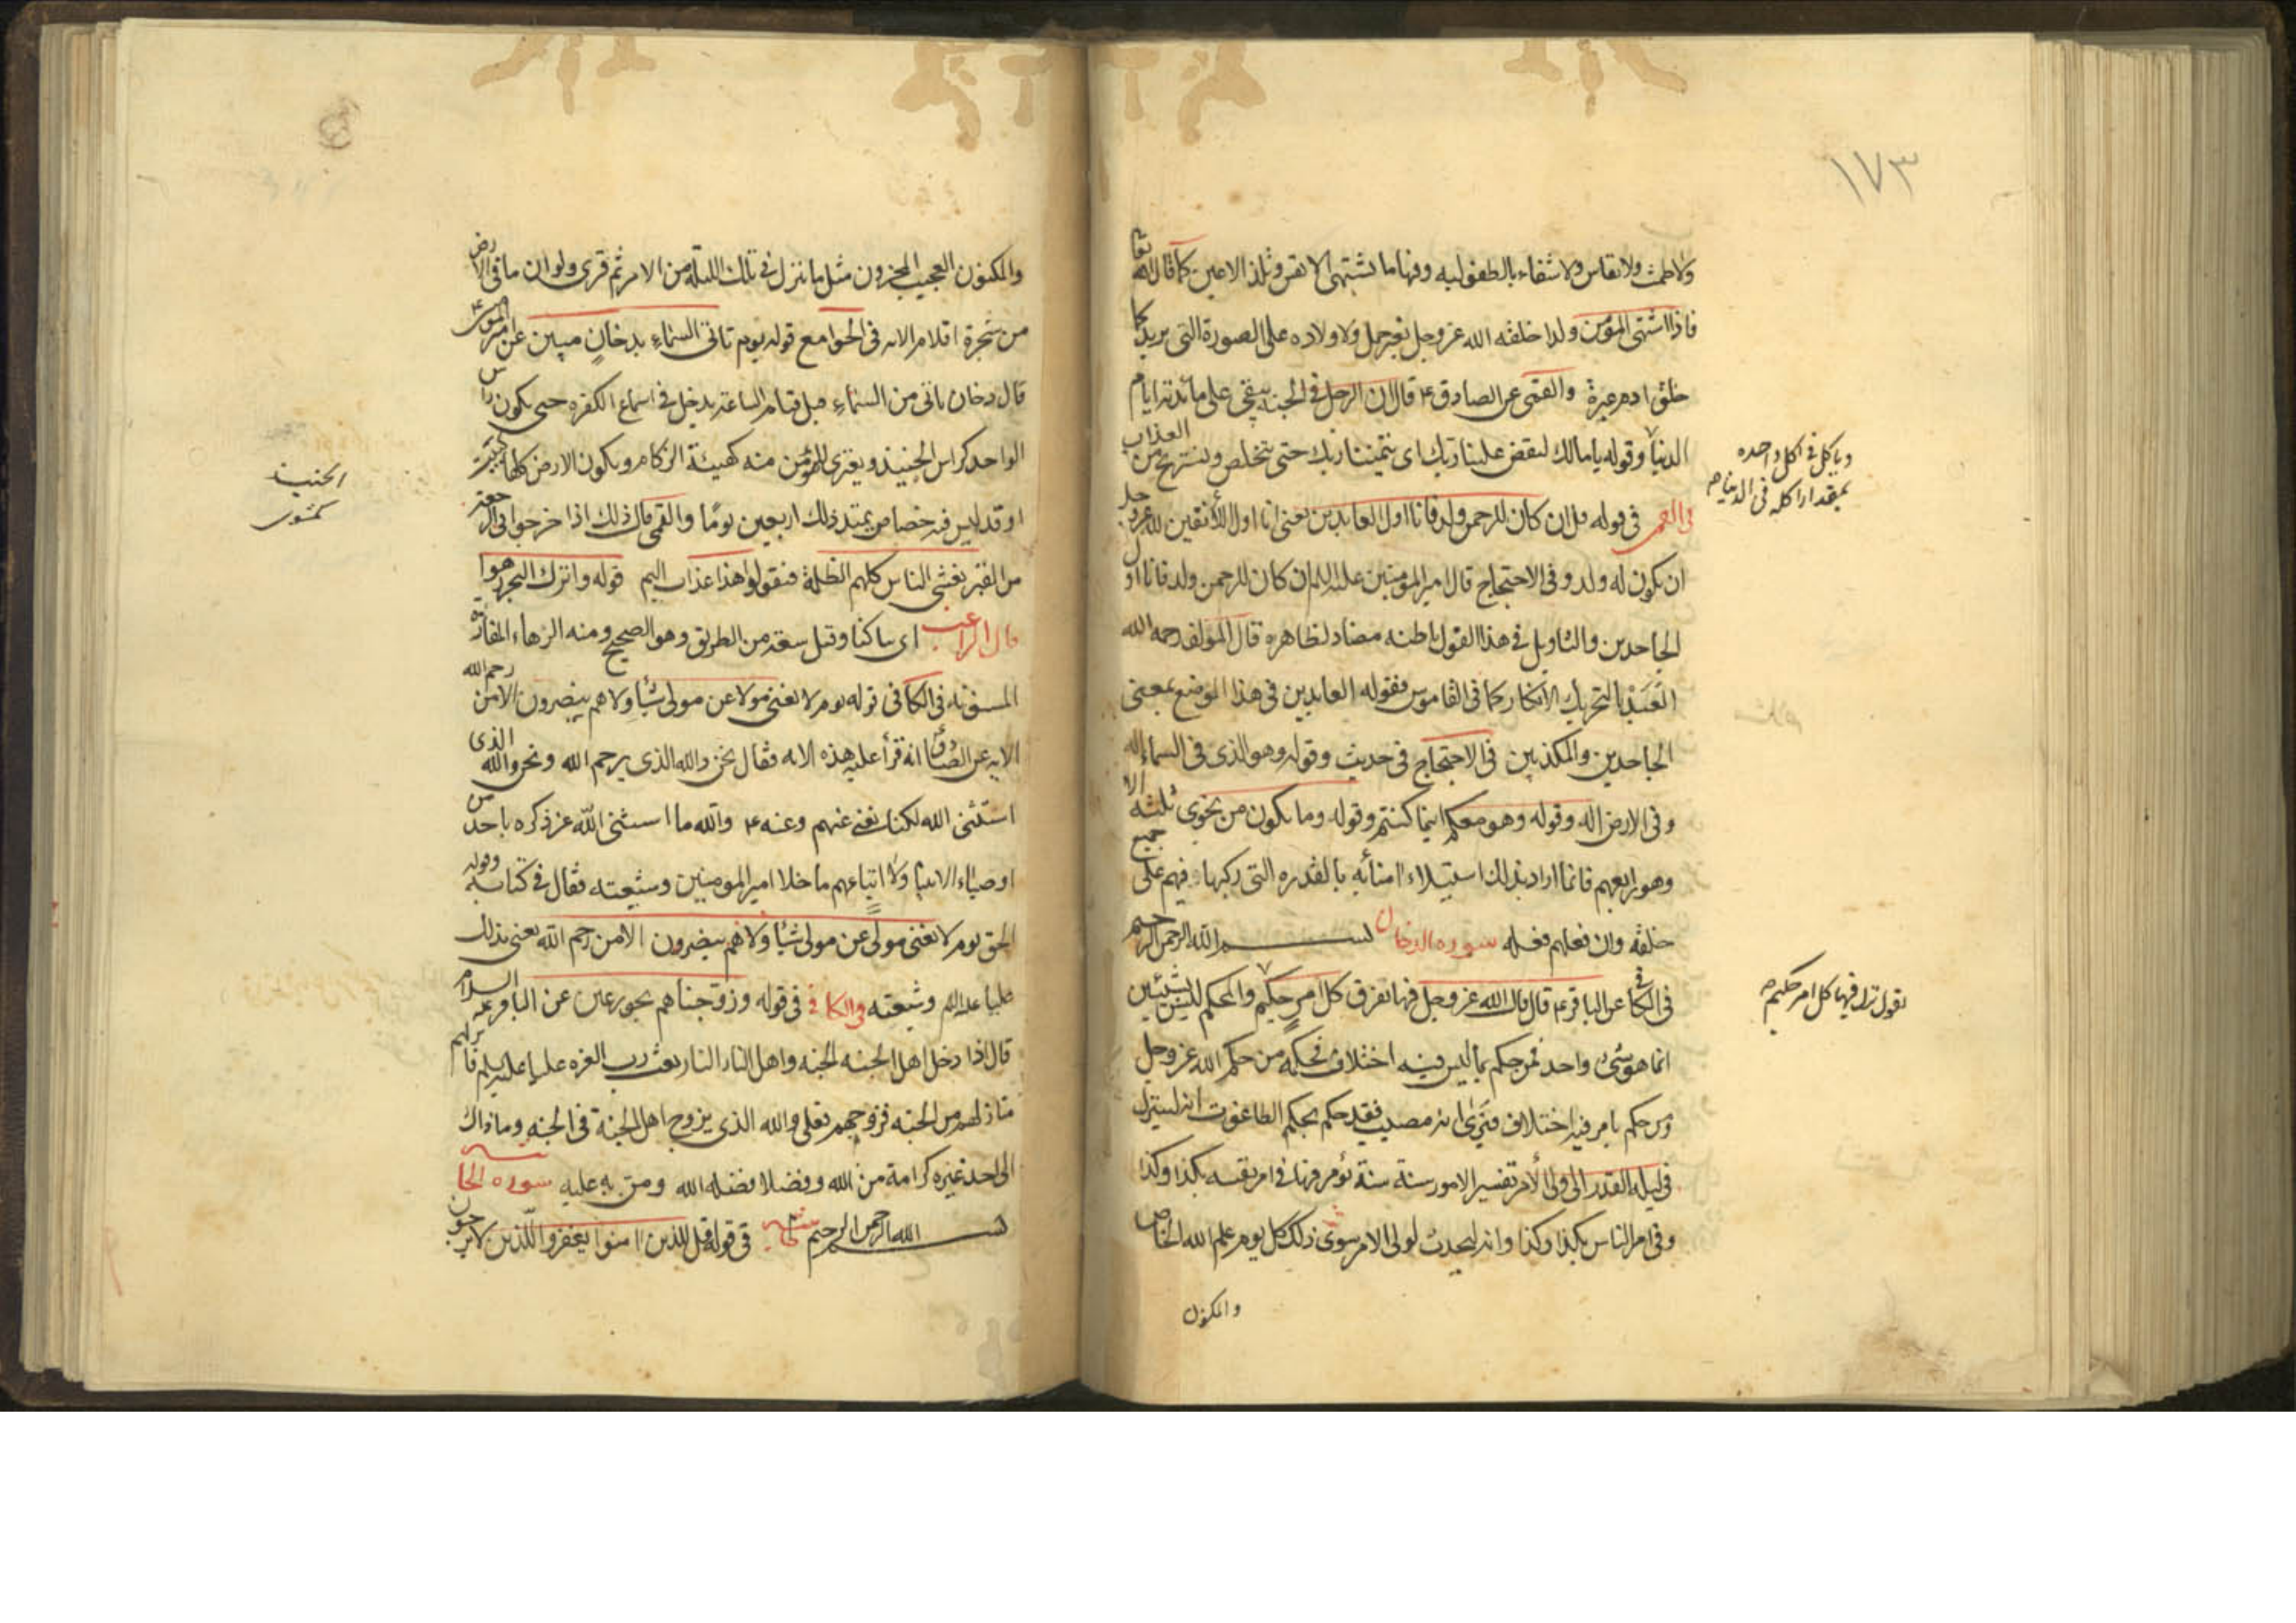 ١٧٣
ولا طمث ولا نفاس ولا شقاء بالطفوليه وفيها ما تشتهى الانفس وتلذ الاعين كما قال الله تعا
فاذا اشتهى المؤمن ولدا خلقه الله عز وجل بغير حمل ولا ولاده على الصورة التى يريد كما
خلق ادم عبرة والقمى عن الصادق ع قال ان الرجل فى الجنه يبقى على مائدته ايام
الدنيا وقوله يا مالك ليقض علينا ربك اى يميتنا ربك حتى نتخلص ونستريح من العذاب
وياكل فى اكل واحده
بمقدار اكله فى الدنيا م
فى القمى فى قوله قل ان كان للرحمن ولد فانا اول العابدين يعنى انا اول الآنفين لله عز وجل
ان يكون له ولد وفى الاحتجاج قال امير المومنين عليه السلم ان كان للرحمن ولد فانا اول
الجاحدين والتاويل فى هذا القول باطنه مضاد لظاهره قال المؤلف رحمه الله
العَبَدْ بالتحريك الانكار كما فى القاموس فقوله العابدين فى هذا الموضع بمعنى
الجاحدين والمكذبين فى الاحتجاج فى حديث وقوله وهو الذى فى السماء اله
وفى الارض اله وقوله وهو معكم اينما كنتم وقوله وما يكون من نجوى ثلثه الا
وهو رابعهم فانما اراد بذلك استيلاء امنائه بالقدره التى ركبها فيهم على جميع
خلقه وان فعلهم فعله سوره الدخان بسم الله الرحمن الرحيم
فى الكافى عن الباقر ع قال قال الله عز وجل فيها يفرق كل امر حكيم والمحكم ليس بشيئين
يقول ينزل فيها كل امر حكيم م
انما هو شئ واحد فمن حكم بما ليس فيه اختلاف فحكمه من حكم الله عز وجل
ومن حكم بامر فيه اختلاف فيرى انه مصيب فقد حكم بحكم الطاغوت انه لينزل
فى ليلة القدر الى ولى الأمر تفسير الامور سنة سنة يؤمر فيها فى امر نفسه بكذا وكذا
وفى امر الناس بكذا وكذا وانه ليحدث لولى الامر سوى ذلك كل يوم علم الله الخاص
والمكنون
والمكنون العجيب المخزون مثل ما نزل فى تلك الليلة من الامر ثم قرى ولو ان ما فى الارض
من شجرة اقلام الايه فى الجوامع قوله يوم تاتى السماء بدخان مبين عن امير المومنين ع
قال دخان ياتى من السماء قبل قيام الساعة يدخل فى اسماع الكفره حتى يكون راس
الواحد كراس الحنيذ ويعترى المؤمن منه كهيئة الزكام ويكون الارض كلها كبيت
الحنيذ
كمشوى
اوقد ليس فيه خصاص يمتد ذلك اربعين يومًا والقمى قال ذلك اذا خرجوا فى الرجعة
من القبر يغشى الناس كلهم الظلمة فيقولوا هذا عذاب اليم قوله واترك البحر رهوا
قال الراغب اى ساكنا وقيل سعة من الطريق وهو الصحيح ومنه الرهاء المفازة
المستوية فى الكافى قوله يوم لا يغنى مولا عن مولى شيئا ولا هم ينصرون الا من رحم الله
الايه عن الصادق انه قرأ عليه هذه الايه فقال نحن والله الذى يرحم الله ونحن والله الذى
استثنى الله لكنا نغنى عنهم وعنه ع والله ما استثنى الله عز ذكره باحد من
اوصياء الانبيا ولا اتباعهم ما خلا امير المومنين وشيعته فقال فى كتابه وقوله
الحق يوم لا يغنى مولى عن مولى شيئا ولا هم ينصرون الا من رحم الله يعنى بذلك
عليا عليه السلم وشيعته وفى الكافى فى قوله وزوجناهم بحور عين عن الباقر عليه السلام
قال اذا دخل اهل الجنه الجنه واهل النار النار بعث رب العزه عليا عليه السلم فانزلهم
منازلهم من الجنه فزوجهم فعلى والله الذى يزوج اهل الجنة فى الجنه وما ذاك
الى احد غيره كرامة من الله وفضلا فضله الله ومن به عليه سوره الجاثيه
بسم الله الرحمن الرحيم فى قوله قل للذين امنوا يغفروا للذين لا يرجون